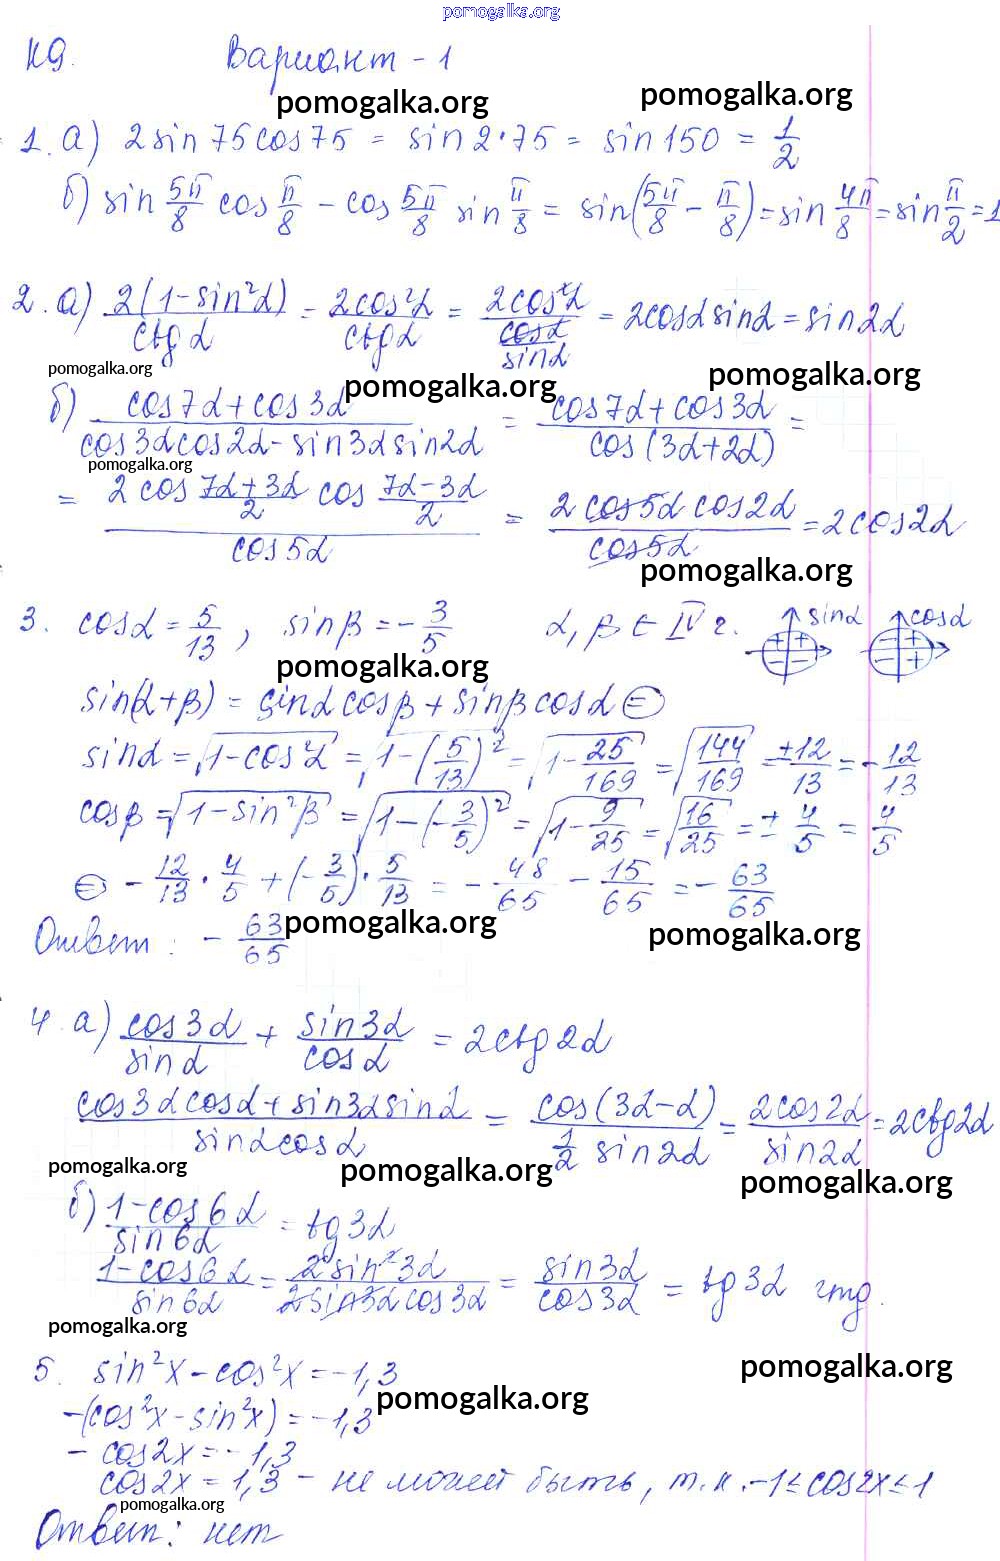 pomogalka.org
К9. Вариант - 1
pomogalka.org pomogalka.org
1. а) 2sin75cos75 = sin2·75 = sin150 = 1/2
б) sin 5π/8 cos π/8 - cos 5π/8 sin π/8 = sin(5π/8 - π/8) = sin 4π/8 = sin π/2 = 1
2. а) 2(1-sin²α)/ctgα = 2cos²α/ctgα = 2cos²α/(cosα/sinα) = 2cosα sinα = sin2α
pomogalka.org pomogalka.org pomogalka.org
б) (cos7α+cos3α)/(cos3αcos2α-sin3αsin2α) = (cos7α+cos3α)/cos(3α+2α) =
pomogalka.org
= (2cos (7α+3α)/2 cos (7α-3α)/2)/cos5α = (2cos5α cos2α)/cos5α = 2cos2α
pomogalka.org
3. cosα = 5/13, sinβ = -3/5 α, β ∈ IV г. sinα + + - - cosα - + - +
pomogalka.org
sin(α+β) = sinαcosβ+sinβcosα ⊜
sinα = √(1-cos²α) = √(1-(5/13)²) = √(1-25/169) = √(144/169) = ±12/13 = -12/13
cosβ = √(1-sin²β) = √(1-(-3/5)²) = √(1-9/25) = √(16/25) = ±4/5 = 4/5
⊜ -12/13 · 4/5 + (-3/5) · 5/13 = -48/65 - 15/65 = -63/65
Ответ: -63/65 pomogalka.org pomogalka.org
4. а) cos3α/sinα + sin3α/cosα = 2ctg2α
(cos3αcosα+sin3αsinα)/(sinαcosα) = cos(3α-α)/(1/2 sin2α) = 2cos2α/sin2α = 2ctg2α
pomogalka.org pomogalka.org pomogalka.org
б) (1-cos6α)/sin6α = tg3α
(1-cos6α)/sin6α = 2sin²3α/(2sin3αcos3α) = sin3α/cos3α = tg3α чтд.
pomogalka.org
5. sin²x - cos²x = -1,3 pomogalka.org
-(cos²x - sin²x) = -1,3 pomogalka.org
- cos2x = -1,3
cos2x = 1,3 - не может быть, т.к. -1≤cos2x≤1
pomogalka.org
Ответ: нет